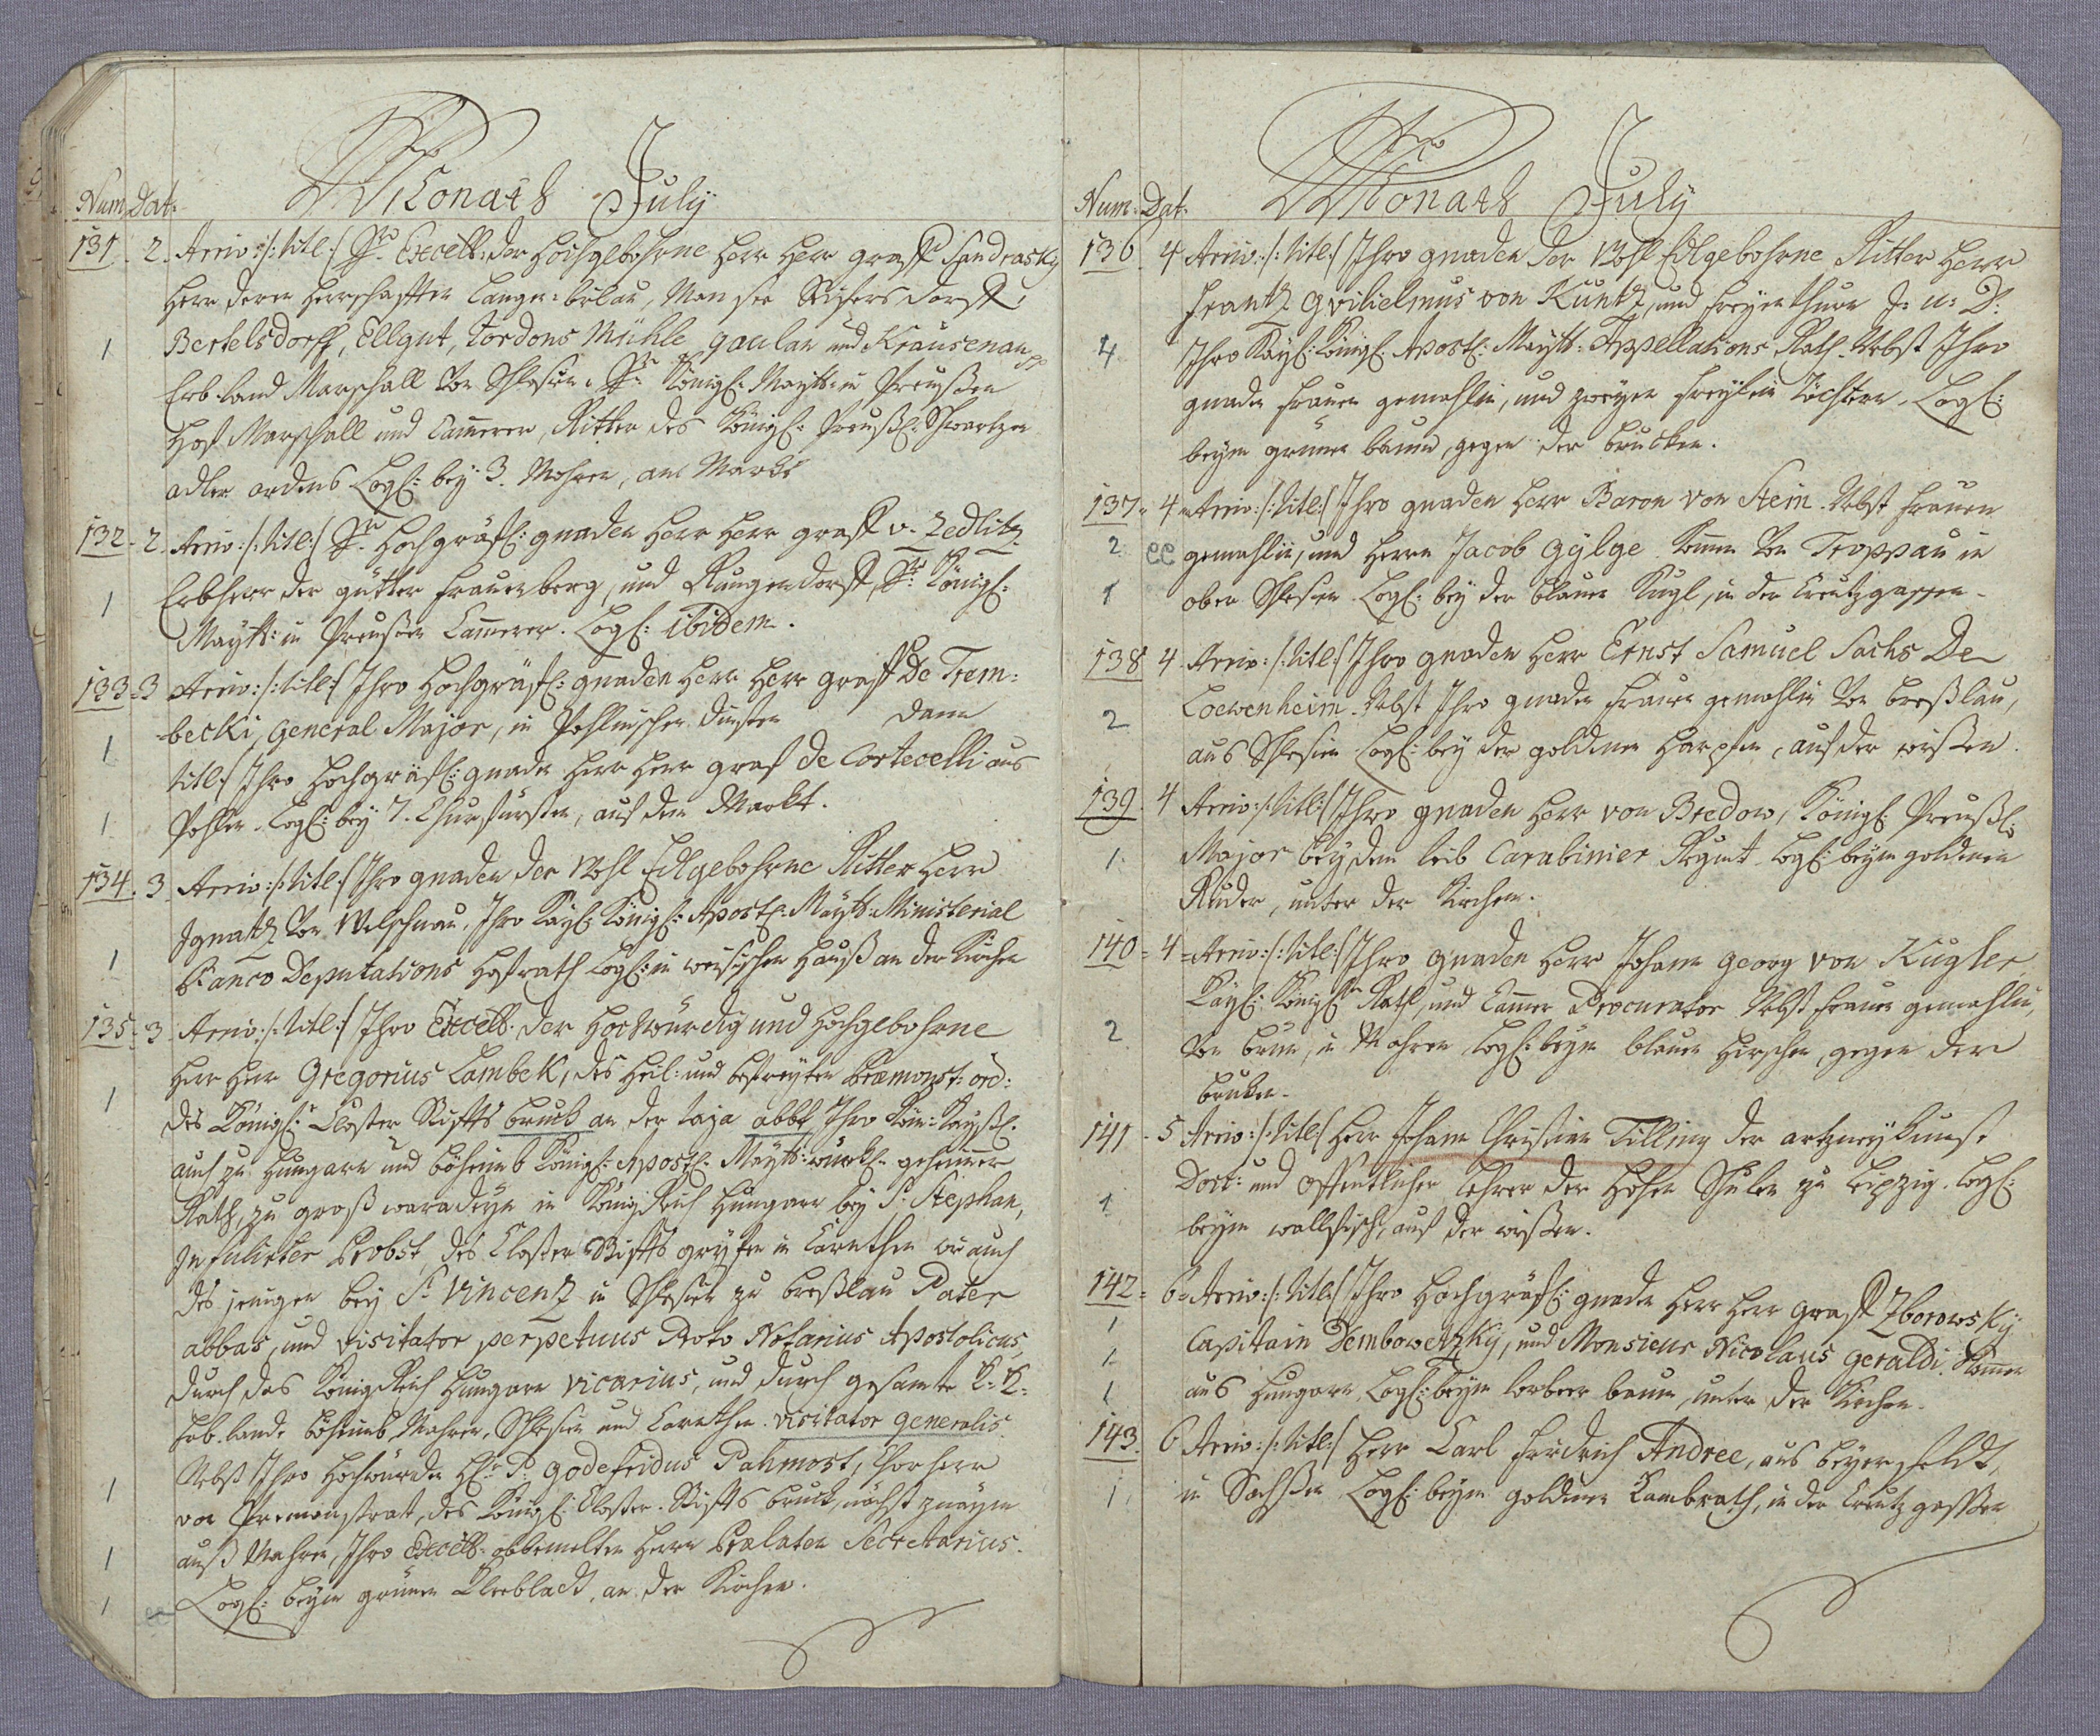 Monath July
Num: Dat:
131. 2. Arriv: /: titl: / Sr. Excell: der Hochgebohrne Herr Herr graff Sandrasky
Herr deren Herrschafften Langen-bilau, Man see Seifersdorff,
1 Bertelsdorff, Ellgut, Tordons Mühle, gaulau und Krausenau pp
Erb-Land Marschall von Schlesien. Sr: Königl: Maytt: in Preußen
Hof Marschall und Cammerer, Ritter des Königl: Preußl: Schwartzen
adler ordens Logl: bey 3. Mohren, am Markt
132. 2. Arriv: /: titl: / Sr. Hochgräfl: gnaden Herr Herr graff v. Zedlitz
1 Erbherr der gütter Frauenberg, und Rungendorff, Sr: Königl:
Maytt: in Preußen Cammerer. Logl: ibidem.
133. 3 Arriv: /: titl: / Ihro Hochgräfl: gnaden Herr Herr graf De Trem=
1 =becki, General Major, in Pohlnischen Dinsten dann
titl: / Ihro Hochgräfl: gnaden Herr Herr graf de Cortecelli aus
1 Pohlen. Logl: bey 7. Churfürsten, auf dem Markt.
134. 3. Arriv: /: titl: / Ihro gnaden der Wohl Edlgebohrne Ritter Herr
Ignatz von Welschnau, Ihro Kayl: Königl: Apostl: Maytt: Ministerial
1 Banco Deputations Hofrath Logl: in weisischen Hauß an der Kirchen
135. 3. Arriv: /: titl: / Ihro Excell: der Hochwürdig und Hochgebohrne
Herr Herr Gregorius Lambek, des Heil: und befreyten Præmonst: ord:
1 des Königl: Closter Stiffts bruck an der taja abbt, Ihro Röm: Kayßl:
auch zu Hungarn und böheimb Königl: Apostl: Maytt: würkl: geheimer
Rath, zu groß waradeyn in Königreich Hungarn bey S: Stephan,
Infulirter Probst, des Closter Stiffts gryffen in Carnthen wie auch
des jenigen bey St: Vincenz in Schlesien zu breßlau Pater
abbas, und visitator perpetuus Proto Notarius Apostolicus,
durch das Königreich Hungarn Vicarius, und durch gesamte K: K:
Erb. lande böheimb, Mahren, Schlesien und Carnthen. visitator generalis.
1 Nebst Ihro Hochwürden Hl: P: godefridus Pahmost, Chor herr
von Premonstrat, des Königl: Closter-Stiffts bruck, nächst znaym
1 auß Mahren, Ihro Excell: obbemelten Herrn Prælaten Secretarius.
1 Logl: beym grünen Kleebladt, an der Kirchen.
Monath July
Num: Dat:
136. 4 Arriv: /: titl: / Ihro gnaden der Wohl Edlgebohrne Ritter Herr
Frantz gvilielmus von Kuntz, und Freyenthurn J: u: D:
4 Ihro Kayl: Königl: Apostl: Maytt: Appellations Rath. Nebst Ihro
gnaden Frauen gemahlin, und zweyen Freylein Töchtern. Logl:
beym grünen baum, gegen der brucken.
137. 4. Arriv: /: titl: / Ihro gnaden Herr Baron von Stein. Nebst Frauen
2 gemahlin, und Herrn Jacob Gylge. komen von Troppau in
1 ober Schlesien. Logl: bey der blauen Kugl, in der Creutzgassen.
138. 4. Arriv: /: titl: / Ihro gnaden Herr Ernst Samuel Sachs De
2 Loewenheim. Nebst Ihro gnaden Frauen gemahlin von breßlau,
aus Schlesien Logl: bey der goldenen Harpfen, auf der wisßen.
139. 4 Arriv: /: titl: / Ihro gnaden Herr von Bredow, Königl: Preußl:
1. Major bey dem leib Carabinier Regmt. Logl: beym goldenen
Ruder, unter der Kirchen.
140 = 4 = Arriv: /: titl: / Ihro gnaden Herr Johann georg von Kugler
Kayl: Königl: Rath, und Cammer Procurator Nebst Frauen gemahlin,
2 von brünn, in Mähren, Logl: beym blauen Hirschen, gegen der
brucken.
141. 5 Arriv: /: titl: / Herr Johann Christian Tilling der artzneykunst
1 Doct: und offentlicher Lehrer der Hohen Schulen zu Leipzig. Logl:
beym wallfisch, auf der wisßen.
142 = 6 = Arriv: /: titl: / Ihro Hochgräfl: gnaden Herr Herr graff Zborowsky
1 Capitain Dembowetzky, und Monsieur Nicolaus geraldi. komen
1 aus Hungarn, Logl: beym lorbeer baum, unter der Kirchen.
1
143. 6 Arriv: /: titl: / Herr Carl Fridrich Andree, aus beyersfeldt,
1 in Sachßen Logl: beym goldenen Kambrath, in der Creutz gassßen